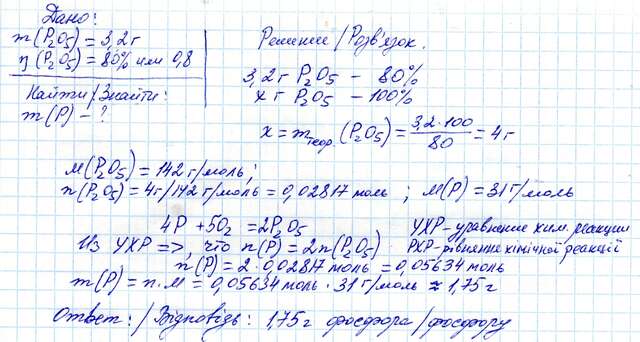 Дано:
m(P₂O₅) = 3,2г
η(P₂O₅) = 80% или 0,8
Найти/Знайти:
m(P) - ?
Решение/Розв'язок.
3,2г P₂O₅ - 80%
x г P₂O₅ - 100%
x = mтеор.(P₂O₅) = 3,2·100/80 = 4г
M(P₂O₅) = 142 г/моль;
n(P₂O₅) = 4г/142 г/моль = 0,02817 моль ; M(P) = 31 г/моль
4P + 5O₂ = 2P₂O₅ УХР - уравнение хим. реакции
Из УХР =>, что n(P) = 2n(P₂O₅) РХР - рівняння хімічної реакції
n(P) = 2·0,02817 моль = 0,05634 моль
m(P) = n·M = 0,05634 моль · 31 г/моль ≈ 1,75г
Ответ:/Відповідь: 1,75г фосфора/фосфору